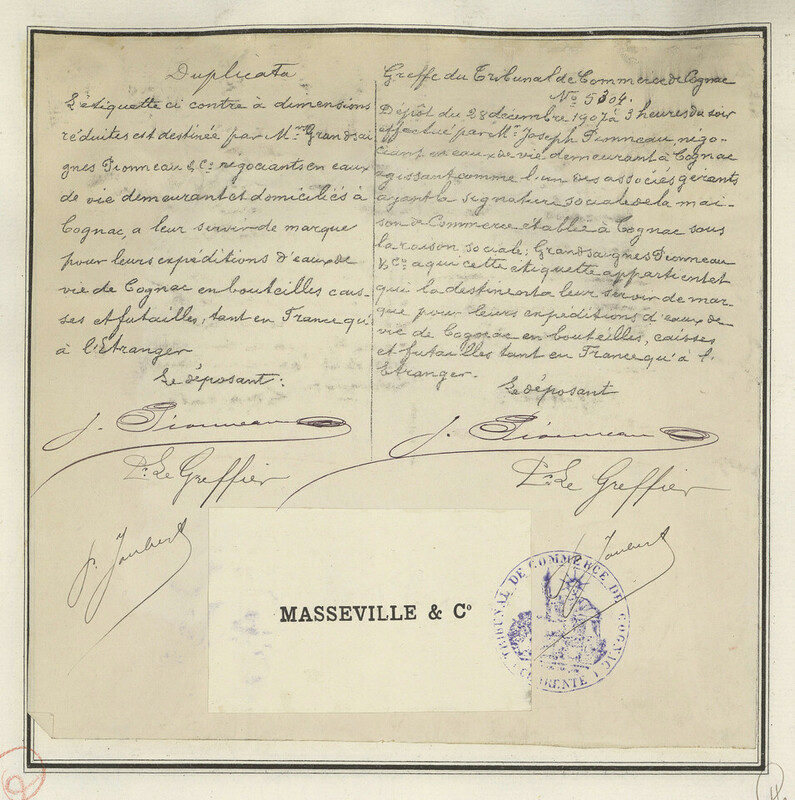 Duplicata
L'étiquette ci contre à dimensions
réduites est destinée par Mrs Grandsai
gnes Pionneau & Co négociants en eaux
de vie demeurant et domiciliés à
Cognac, a leur servir de marque
pour leurs expéditions d'eaux de
vie de Cognac en bouteilles cais-
ses et futailles, tant en France qu'
à l'Etranger
Le déposant:
J. Pionneau
Pr. Le Greffier
Joubert
Greffe du Tribunal de Commerce de Cognac
No 5304.
Dépôt du 28 décembre 1907 à 3 heures du soir
effectué par Mr. Joseph Pionneau, négo-
ciant en eaux de vie demeurant à Cognac
agissant comme l'un des associés gérants
ayant la signature sociale de la mai-
son de Commerce établie à Cognac sous
la raison sociale: Grandsaignes Pionneau
& Co a qui cette étiquette appartient et
qui la destinent a leur servir de mar-
que pour leurs expéditions d'eaux de
vie de Cognac en bouteilles, caisses
et futailles tant en France qu'à l'
Etranger.
Le déposant
J. Pionneau
Pr. Le Greffier
Joubert
MASSEVILLE & Co
TRIBUNAL DE COMMERCE DE COGNAC
CHARENTE